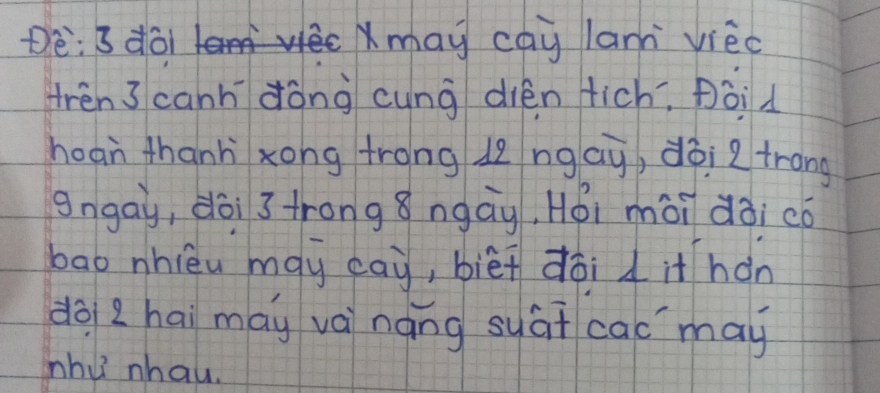 Đề: 3 đội làm việc X máy cày làm việc
trên 3 cánh đồng cùng diện tích. Đội 1
hoàn thành xong trong 12 ngày, đội 2 trong
9 ngày, đội 3 trong 8 ngày. Hỏi mỗi đội có
bao nhiêu máy cày, biết đội 1 ít hơn
đội 2 hai máy và năng suất các máy
như nhau.